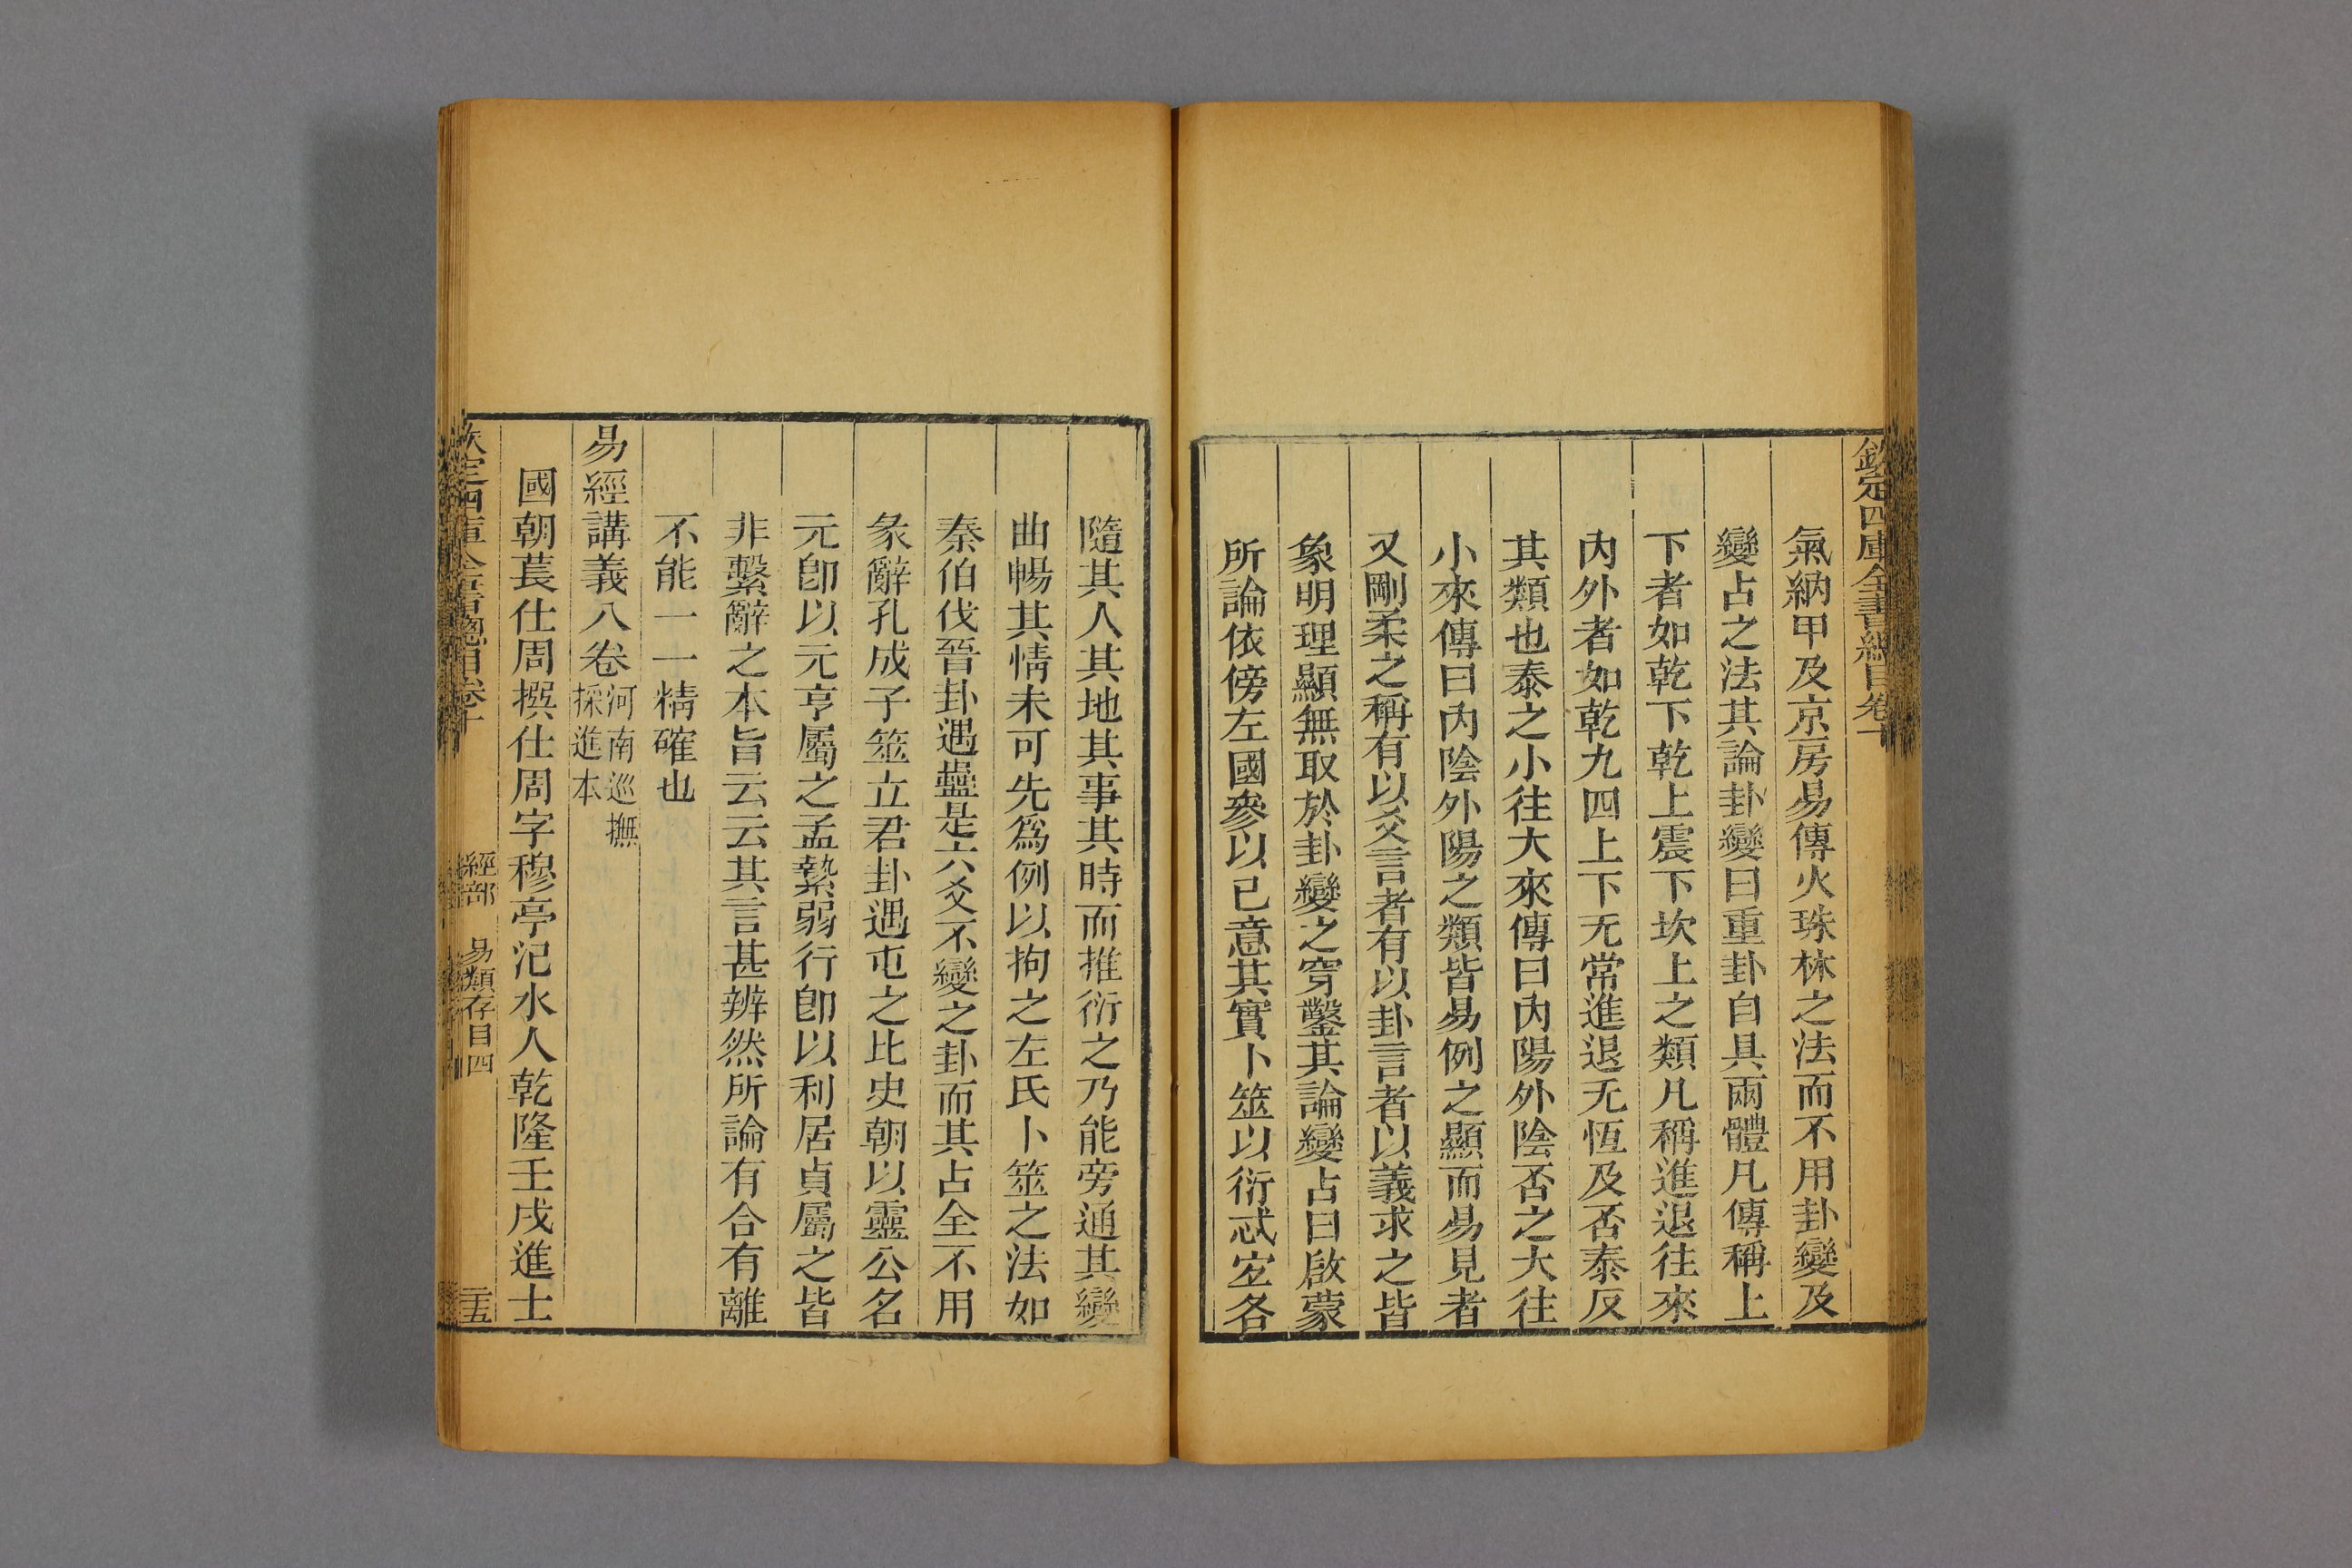 欽定四庫全書總目卷十
氣納甲及京房易傳火珠林之法而不用卦變及
變占之法其論卦變曰重卦自具兩體凡傳稱上
下者如乾下乾上震下坎上之類凡稱進退往來
內外者如乾九四上下无常進退无恆及否泰反
其類也泰之小往大來傳曰內陽外陰否之大往
小來傳曰內陰外陽之類皆易例之顯而易見者
又剛柔之稱有以爻言者有以卦言者以義求之皆
象明理顯無取於卦變之穿鑿其論變占曰啟蒙
所論依傍左國參以己意其實卜筮以衍忒宐各
隨其人其地其事其時而推衍之乃能旁通其變
曲暢其情未可先爲例以拘之左氏卜筮之法如
秦伯伐晉卦遇蠱是六爻不變之卦而其占全不用
彖辭孔成子筮立君卦遇屯之比史朝以靈公名
元卽以元亨屬之孟縶弱行卽以利居貞屬之皆
非繫辭之本旨云云其言甚辨然所論有合有離
不能一一精確也
易經講義八卷河南巡撫採進本
國朝萇仕周撰仕周字穆亭汜水人乾隆壬戌進士
欽定四庫全書總目卷十 經部 易類存目四 二十五